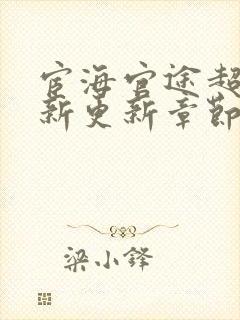 宦海官途超
新更新章節
梁小鋒